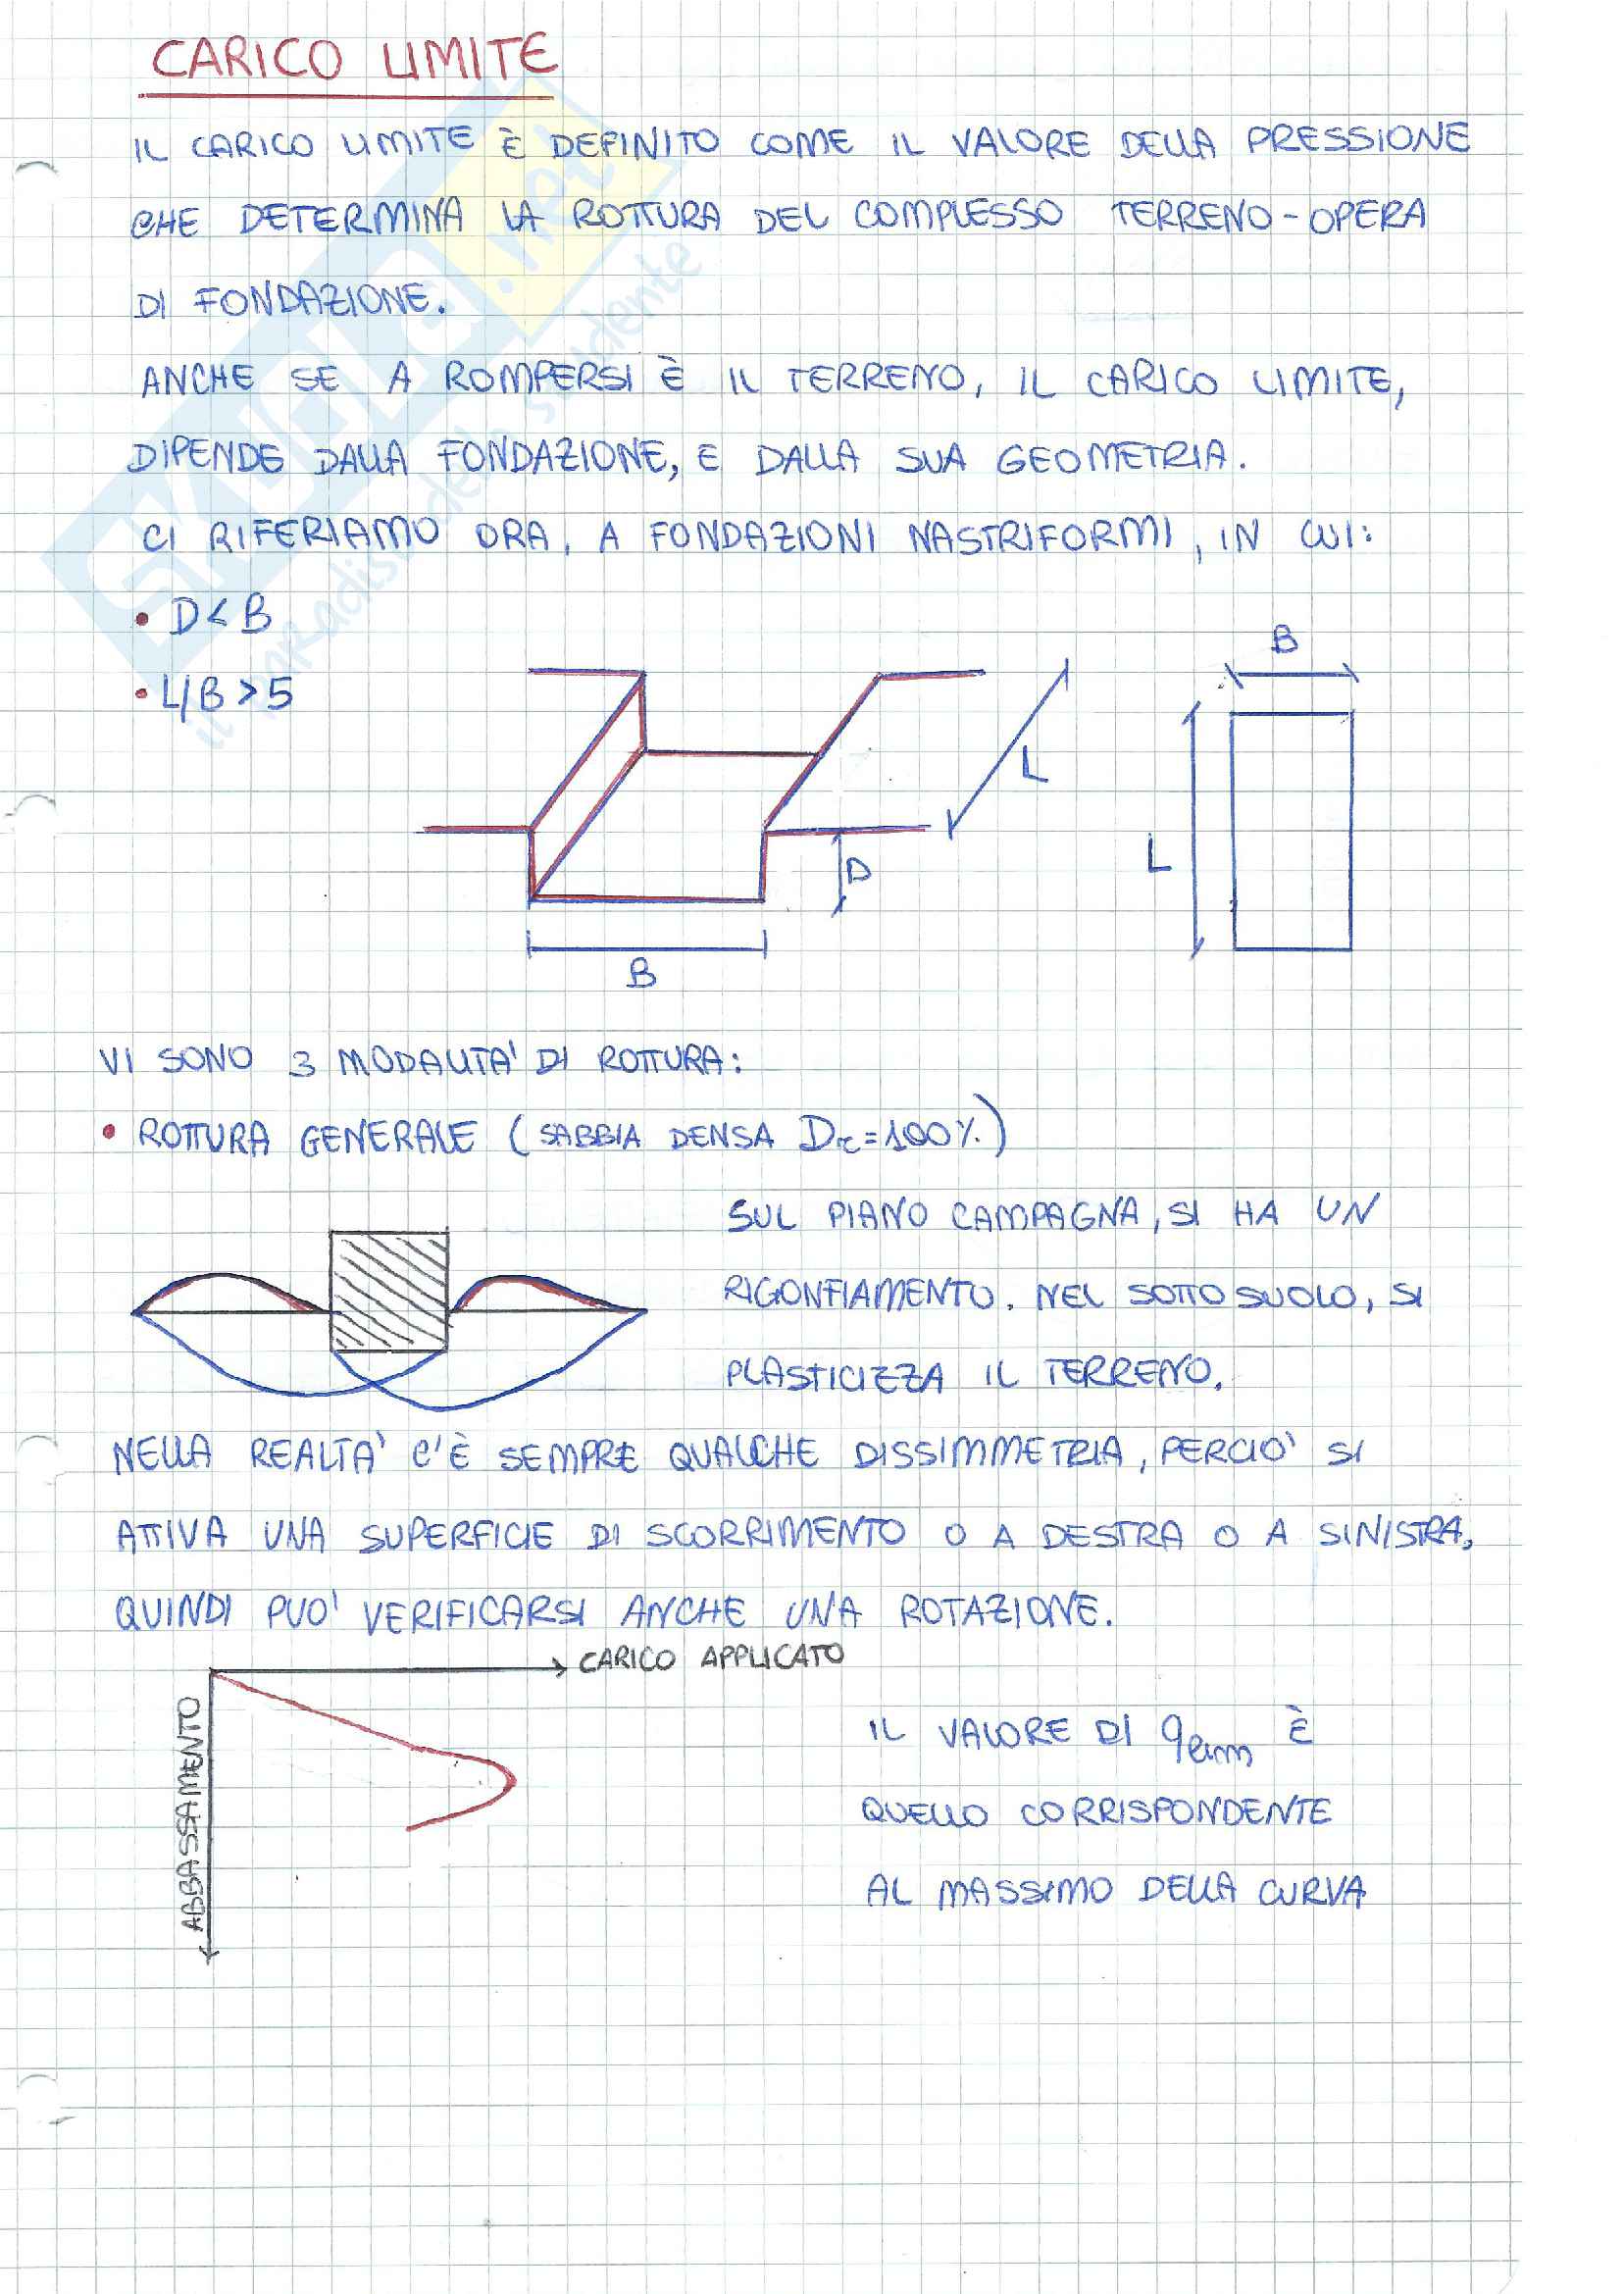 CARICO LIMITE
IL CARICO LIMITE È DEFINITO COME IL VALORE DELLA PRESSIONE
CHE DETERMINA LA ROTTURA DEL COMPLESSO TERRENO-OPERA
DI FONDAZIONE.
ANCHE SE A ROMPERSI È IL TERRENO, IL CARICO LIMITE,
DIPENDE DALLA FONDAZIONE, E DALLA SUA GEOMETRIA.
CI RIFERIAMO ORA, A FONDAZIONI NASTRIFORMI, IN CUI:
• D<B
• L/B>5
B
L
L
D
B
VI SONO 3 MODALITA' DI ROTTURA:
• ROTTURA GENERALE (SABBIA DENSA Dr=100%)
SUL PIANO CAMPAGNA, SI HA UN
RIGONFIAMENTO. NEL SOTTOSUOLO, SI
PLASTICIZZA IL TERRENO.
NELLA REALTA' C'È SEMPRE QUALCHE DISSIMMETRIA, PERCIO' SI
ATTIVA UNA SUPERFICIE DI SCORRIMENTO O A DESTRA O A SINISTRA,
QUINDI PUO' VERIFICARSI ANCHE UNA ROTAZIONE.
CARICO APPLICATO
ABBASSAMENTO
IL VALORE DI qlim È
QUELLO CORRISPONDENTE
AL MASSIMO DELLA CURVA
SKUOLA.net
il paradiso dello studente